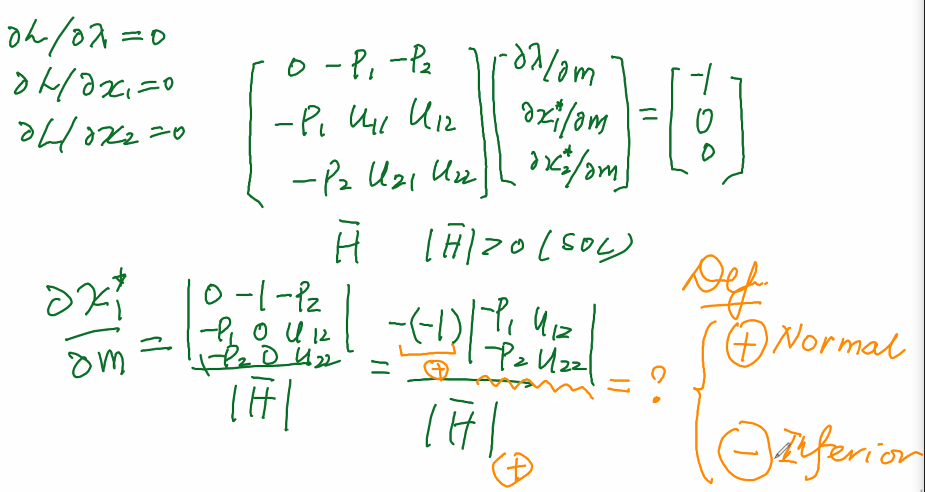 ∂L/∂λ = 0
∂L/∂x₁ = 0
∂L/∂x₂ = 0
[ 0 -P₁ -P₂ ] [ -∂λ/∂m ] = [ -1 ]
[ -P₁ U₁₁ U₁₂ ] [ ∂x₁*/∂m ] [ 0 ]
[ -P₂ U₂₁ U₂₂ ] [ ∂x₂*/∂m ] [ 0 ]
H̄ |H̄| > 0 (SOC)
∂x₁*/∂m = | 0 -1 -P₂ |
| -P₁ 0 U₁₂ |
| -P₂ 0 U₂₂ |
/ |H̄|
= -(-1) | -P₁ U₁₂ |
| -P₂ U₂₂ |
⊕
/ |H̄| ⊕
= ?
Def.
{ ⊕ Normal
⊖ Inferior